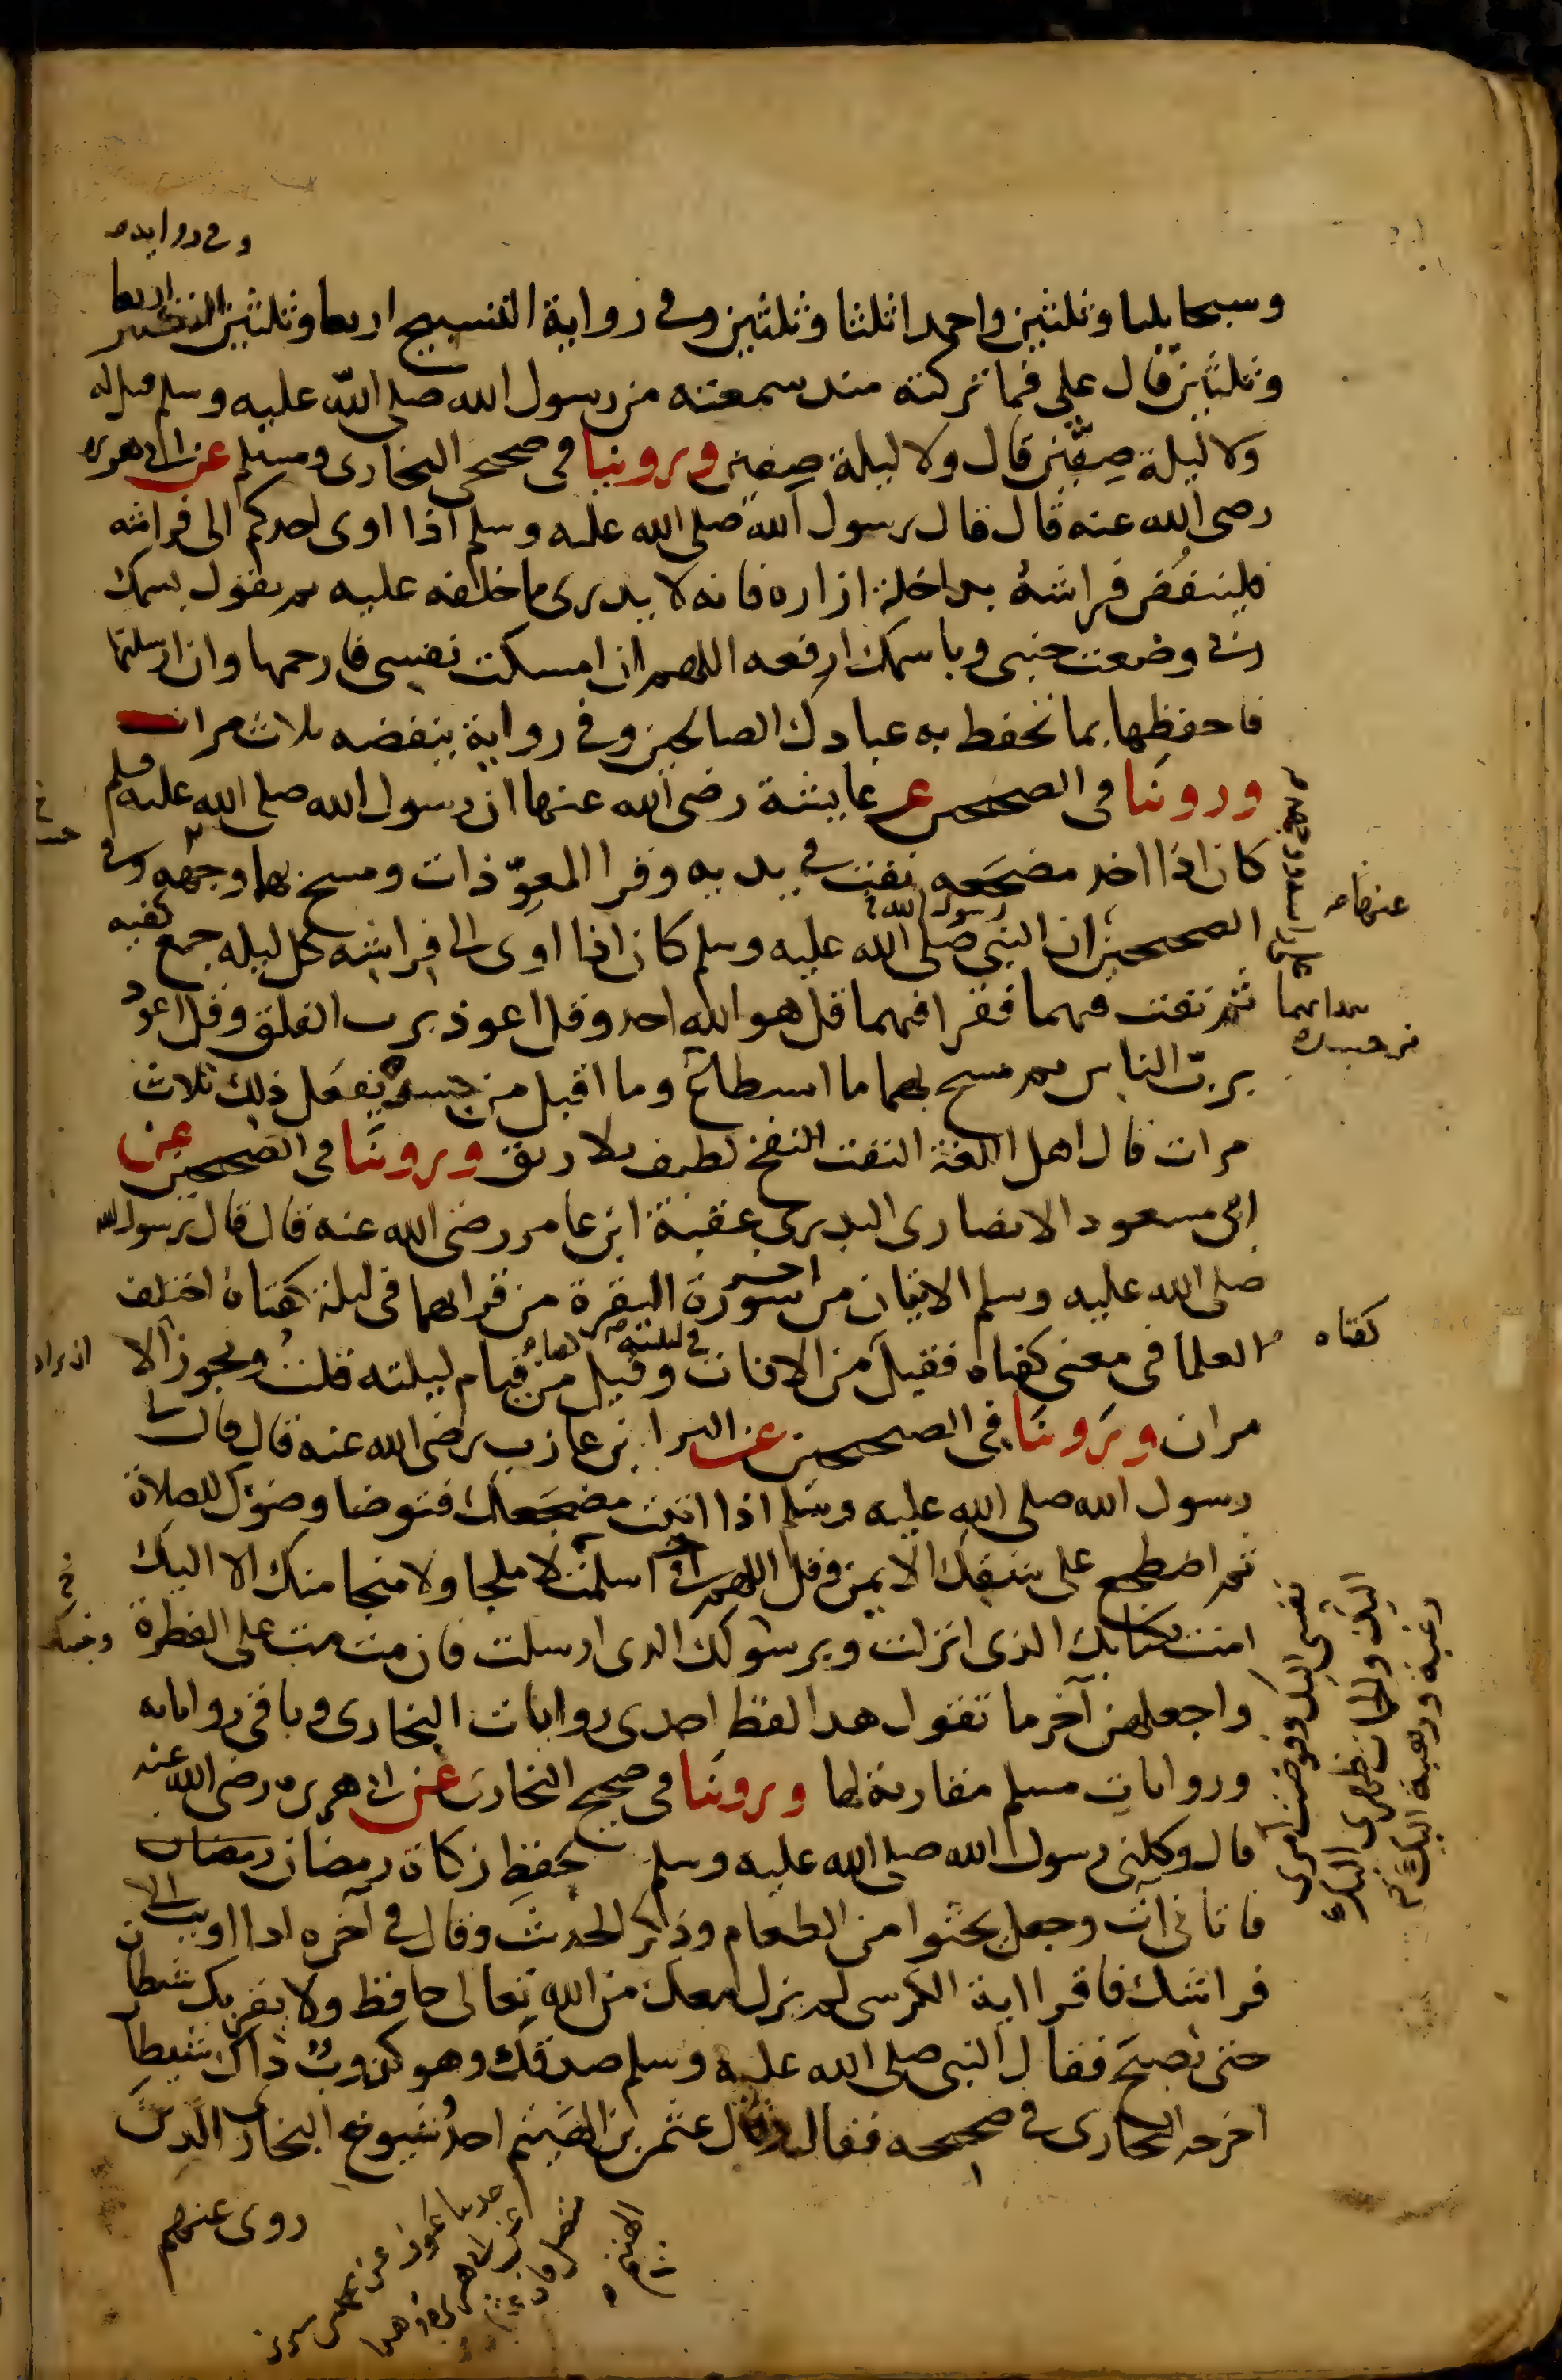 وفي رواية
وسبحا ثلثا وثلثين واحمدا ثلثا وثلثين وفي رواية التسبيح اربعا وثلثين وفي رواية التكبير اربعا
وثلثين قال علي فما تركته منذ سمعته من رسول الله صلى الله عليه وسلم قيل له
ولا ليلة صِفّين قال ولا ليلة صِفين وروينا في صحيحي البخاري ومسلم عن ابي هريرة
رضي الله عنه قال قال رسول الله صلى الله عليه وسلم اذا اوى احدكم الى فراشه
فلينفُض فراشهُ بداخلة ازاره فانه لا يدري ما خلفه عليه ثم يقول باسمك
ربي وضعت جنبي وباسمك ارفعه اللهم ان امسكت نفسي فارحمها وان ارسلتها
فاحفظها بما تحفظ به عبادك الصالحين وفي رواية ينفضه ثلاث مرات
وروينا في الصحيحين عن عايشة رضي الله عنها ان رسول الله صلى الله عليه وسلم
كان اذا اخذ مضجَعه نفث في يديه وقرا المعوّذات ومسح بهما وجهه وفي
الصحيحين ان النبي صلى الله عليه وسلم كان اذا اوى الى فراشه كل ليله جمع كفيه
ثم نفث فيهما فقرا فيهما قل هو الله احد وقل اعوذ برب الفلق وقل اعوذ
بربّ الناس ثم مسح بهما ما استطاع وما اقبل من جسده يفعَل ذلك ثلاث
مرات قال اهل اللغة النفث النفخ لطيف بلا ريق وروينا في الصحيحين عن
ابي مسعود الانصاري البدري عقبة ابن عامر رضي الله عنه قال قال رسول الله
صلى الله عليه وسلم الايتان من اخر سورة البقرة من قرا بهما في ليلة كفتاه اختلف
العلما في معنى كفتاه فقيل من الافات في ليلته وقيل من قيام ليلته قلتُ ويجوز الا
مران وروينَا في الصحيحين عن البرا بن عازب رضي الله عنه قال قال لي
رسول الله صلى الله عليه وسلم اذا اتيت مضجَعك فتوضا وضوك للصلاة
ثم اضطجع على شقك الايمن وقل اللهم اني اسلمت لا ملجا ولا منجا منك الا اليك
امنت بكتابك الذي انزلت وبرسولك الذي ارسلت فان مت مت على الفطرة
واجعلهن آخر ما تقول هذا لفظ احدى روايات البخاري وباقي رواياته
وروايات مسلم مقاربة لها وروينا في صحيح البخاري عن ابي هريره رضي الله عنه
قال وكلني رسول الله صلى الله عليه وسلم بحفظ زكاة رمضان رمضان
فاتاني آت وجعل يحثوا من الطعام وذكر الحديث وقال في آخره اذا اويت الى
فراشك فاقرا اية الكرسي لم يزل معك من الله تعالى حافظ ولا يقربك شيطان
حتى تصبحَ فقال النبي صلى الله عليه وسلم صدقك وهو كذوبٌ ذاك شيطان
اخرجه البخاري في صحيحه فقال وقال عثمن بن الهَيثم احدُ شيوخ البخاري الذي
روى عنهم
عنهما
كفتاه
ان يراد
نفسي اليك وفوضت امري
اليك والجات ظهري اليك
رغبة ورهبة اليك